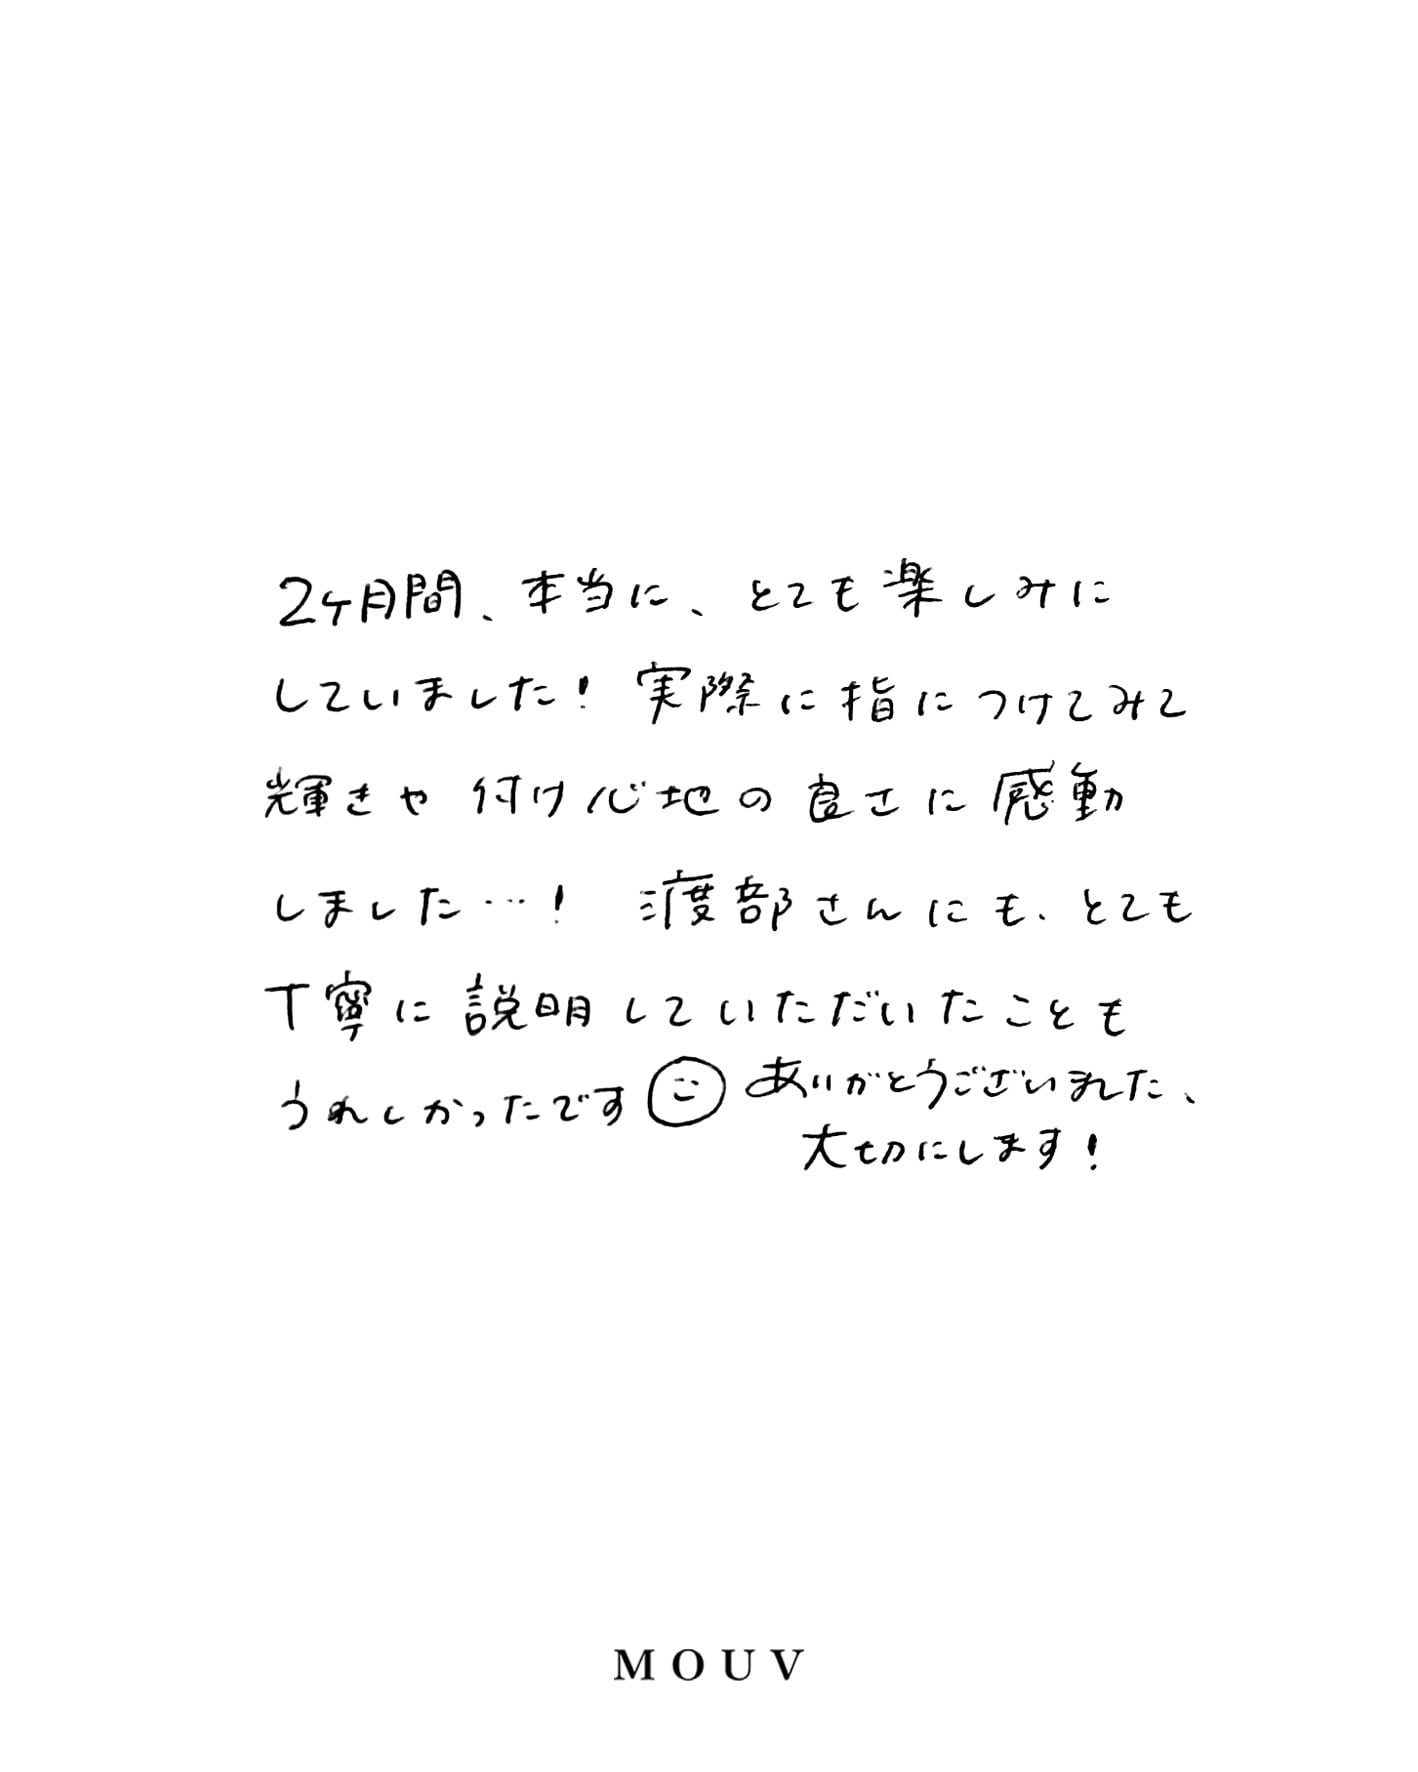 2ヶ月間、本当に、とても楽しみに
していました！実際に指につけてみて
輝きや付け心地の良さに感動
しました…！渡部さんにも、とても
丁寧に説明していただいたことも
うれしかったです ありがとうございました、
大切にします！
MOUV